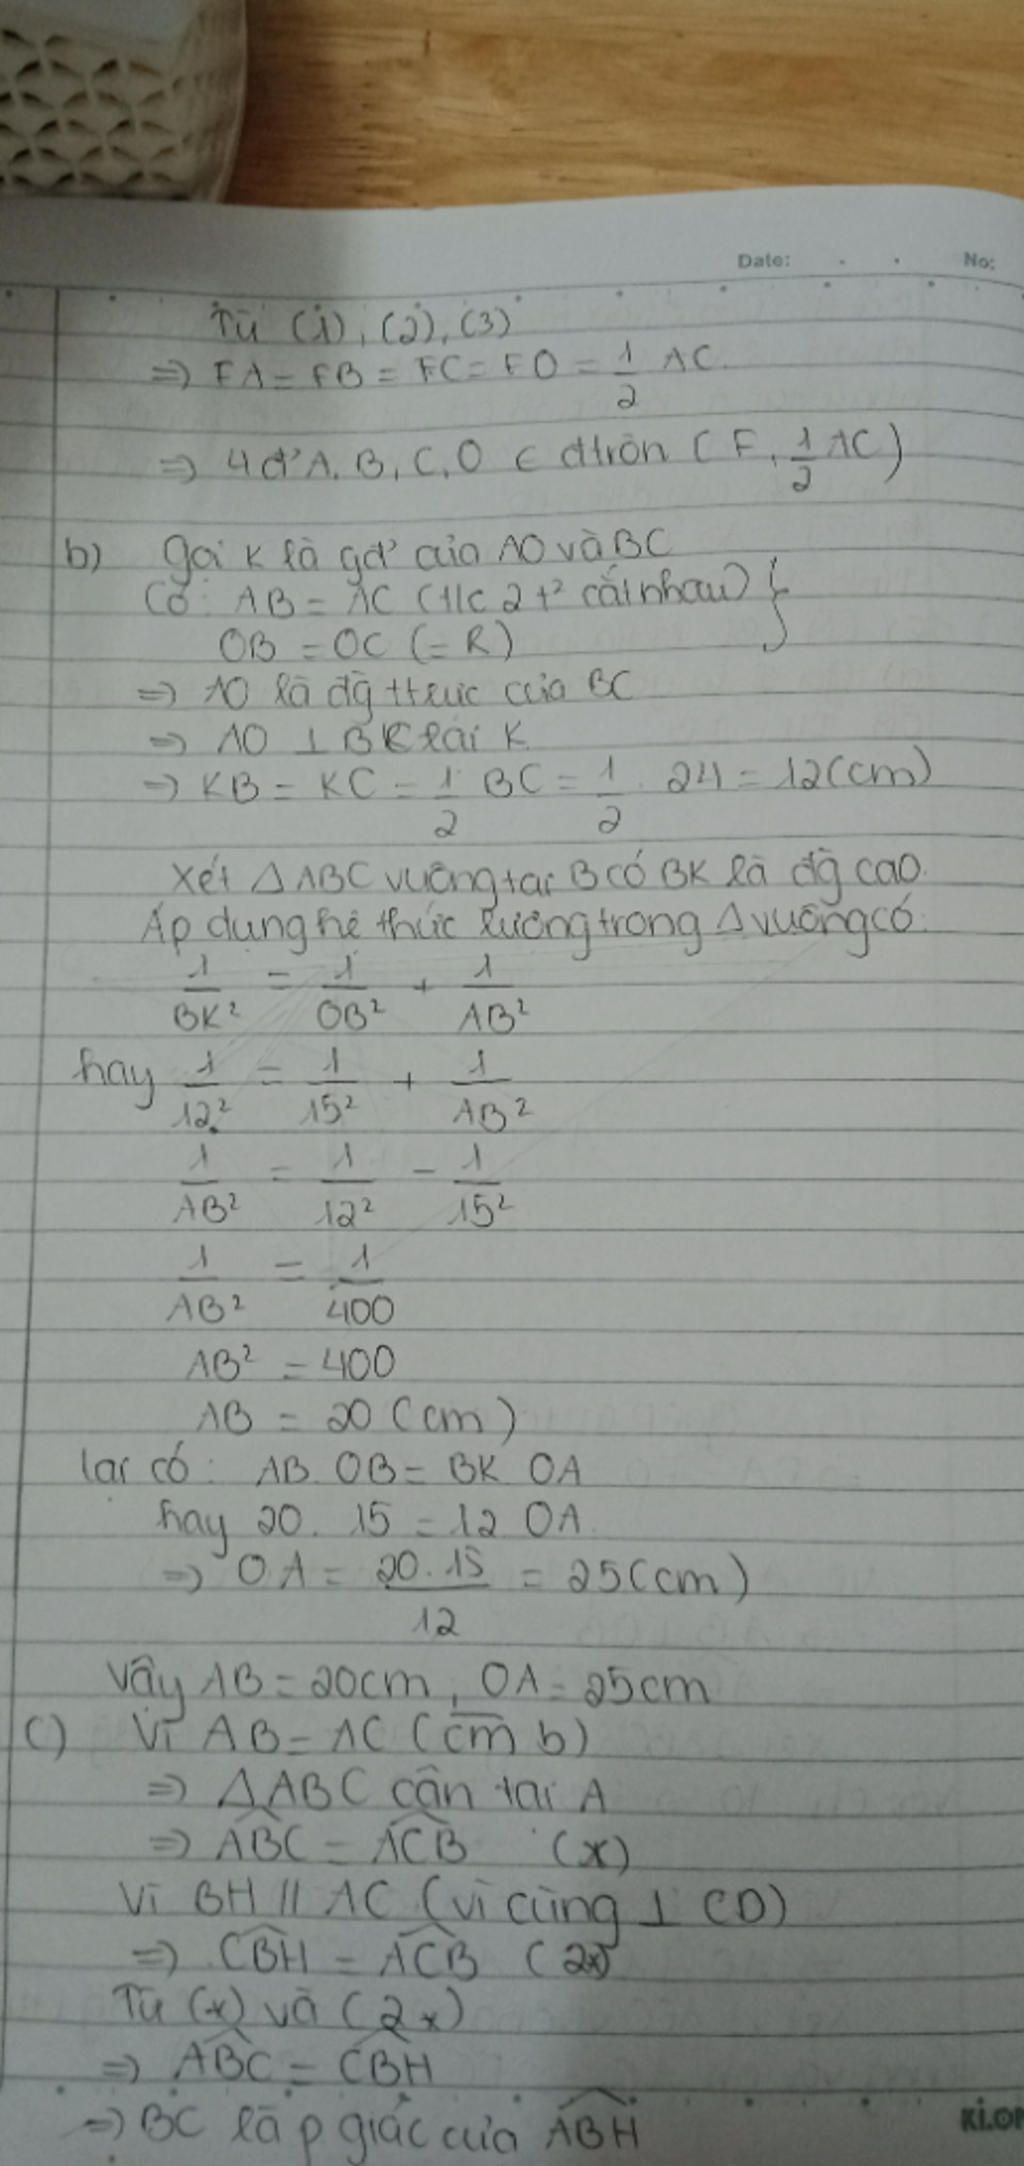 Date: No:
Từ (1), (2), (3)
=> FA = FB = FC = FO = 1/2 AC
=> 4 đ' A, B, C, O ∈ đtròn (F, 1/2 AC)
b) Gọi K là gđ' của AO và BC
Có: AB = AC (t/c 2 t² cắt nhau) }
OB = OC (= R)
=> AO là đg ttrực của BC
=> AO ⊥ BC tại K
=> KB = KC = 1/2 BC = 1/2 . 24 = 12 (cm)
Xét △ABC vuông tại B có BK là đg cao.
Áp dụng hệ thức lượng trong △vuông có:
1/BK² = 1/OB² + 1/AB²
hay 1/12² = 1/15² + 1/AB²
1/AB² = 1/12² - 1/15²
1/AB² = 1/400
AB² = 400
AB = 20 (cm)
lại có: AB. OB = BK. OA
hay 20. 15 = 12 OA.
=> OA = 20.15/12 = 25 (cm)
Vậy AB = 20cm, OA = 25cm
c) Vì AB = AC (cm b)
=> △ABC cân tại A
=> ABC = ACB (x)
Vì BH // AC (vì cùng ⊥ CD)
=> CBH = ACB (2x)
Từ (x) và (2x)
=> ABC = CBH
=> BC là p giác của ABH